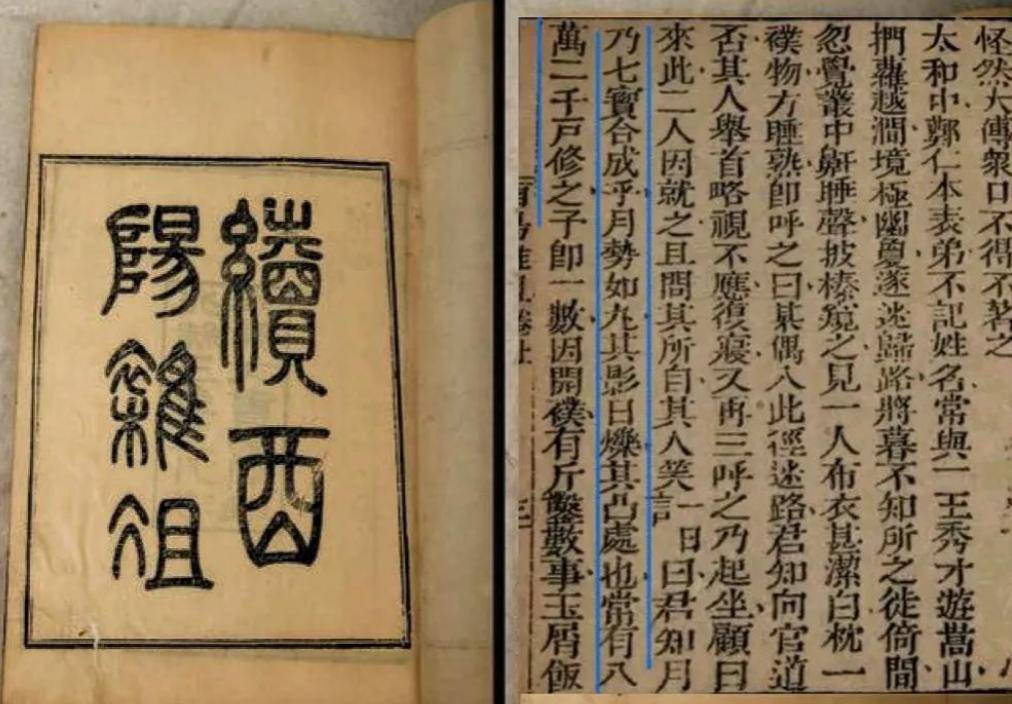 續酉
陽雜俎
怪然大傳眾口不得不著之
太和中鄭仁本表弟不記姓名常與一王秀才遊嵩山
捫蘿越澗境極幽夐遂迷歸路將暮不知所之徙倚間
忽覺叢中鼾睡聲披榛窺之見一人布衣甚潔白枕一
襆物方睡熟卽呼之曰某偶入此徑迷路君知向官道
否其人舉首略視不應復寢又再三呼之乃起坐顧曰
來此二人因就之且問其所自其人笑一曰言曰君知月
乃七寶合成乎月勢如丸其影日爍其凸處也常有八
萬二千戸修之子卽一數因開襆有斤鑿數事玉屑飯